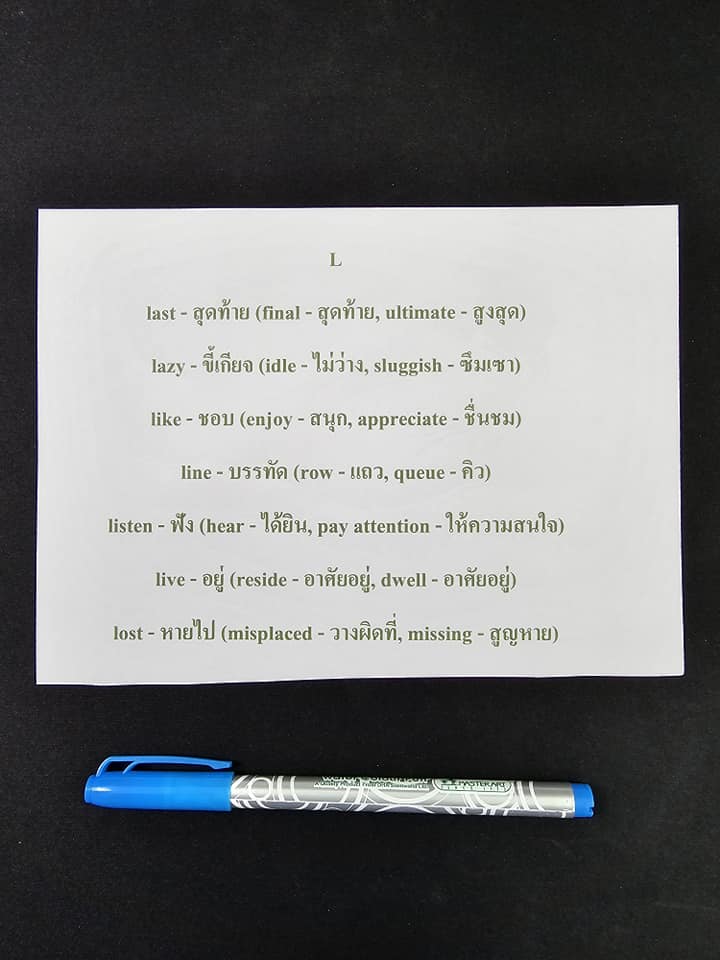 L
last - สุดท้าย (final - สุดท้าย, ultimate - สูงสุด)
lazy - ขี้เกียจ (idle - ไม่ว่าง, sluggish - ซึมเซา)
like - ชอบ (enjoy - สนุก, appreciate - ชื่นชม)
line - บรรทัด (row - แถว, queue - คิว)
listen - ฟัง (hear - ได้ยิน, pay attention - ให้ความสนใจ)
live - อยู่ (reside - อาศัยอยู่, dwell - อาศัยอยู่)
lost - หายไป (misplaced - วางผิดที่, missing - สูญหาย)
MASTERART